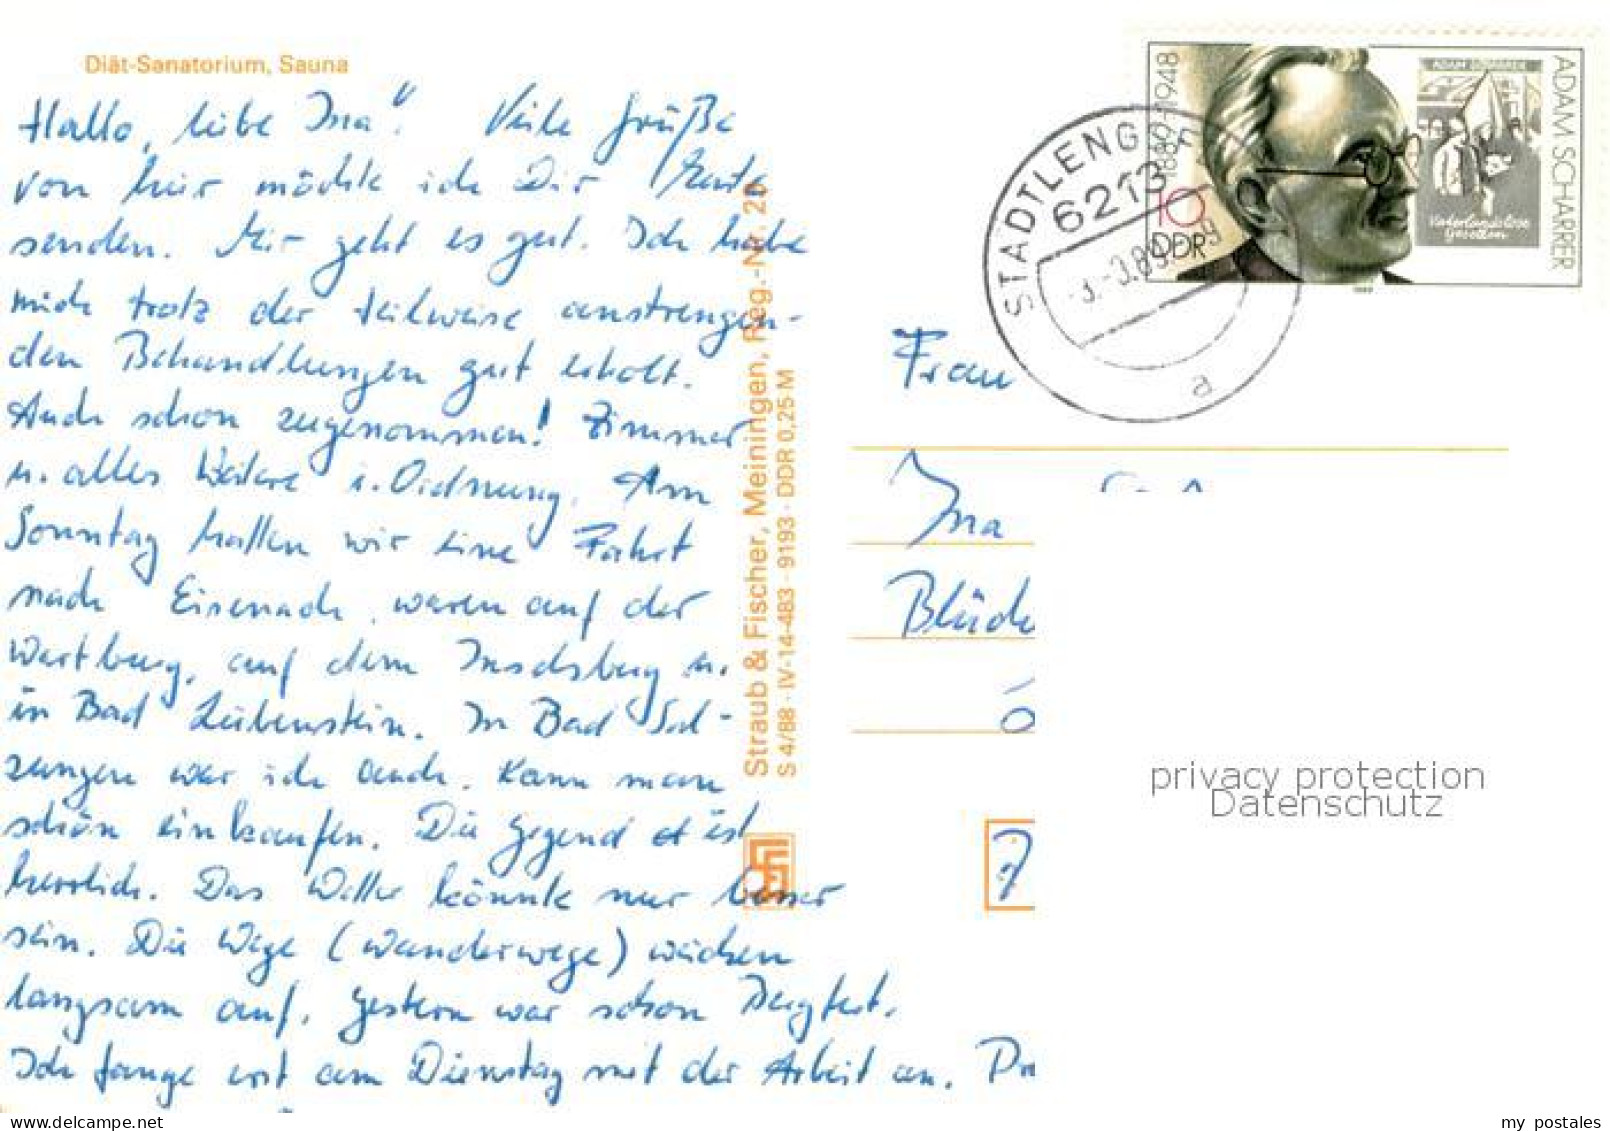 Diät-Sanatorium, Sauna
Hallo, liebe Ina! Viele Grüße
von hier möchte ich Dir heute
senden. Mir geht es gut. Ich habe
mich trotz der teilweise anstrengen-
den Behandlungen gut erholt.
Auch schon zugenommen! Zimmer
u. alles Weitere i. Ordnung. Am
Sonntag hatten wir eine Fahrt
nach Eisenach, waren auf der
Wartburg, auf dem Inselsberg u.
in Bad Liebenstein. In Bad Sal-
zungen war ich auch. Kann man
schön einkaufen. Die Gegend ist
herrlich. Das Wetter könnte nur besser
sein. Die Wege (Wanderwege) weichen
langsam auf. Gestern war schon Bergfest.
Ich fange erst am Dienstag mit der Arbeit an.
Straub & Fischer, Meiningen, Reg.-Nr. 20
S 4/88 · IV-14-483 · 9193 · DDR 0,25 M
STADTLENGSF
6213
-3.-3.89.-9
a
1889-1948
ADAM SCHARRER
ADAM SCHARRER
Vaterlandslose
Gesellen
10
DDR
Frau
Ina
Blüche
7
privacy protection
Datenschutz
my postales